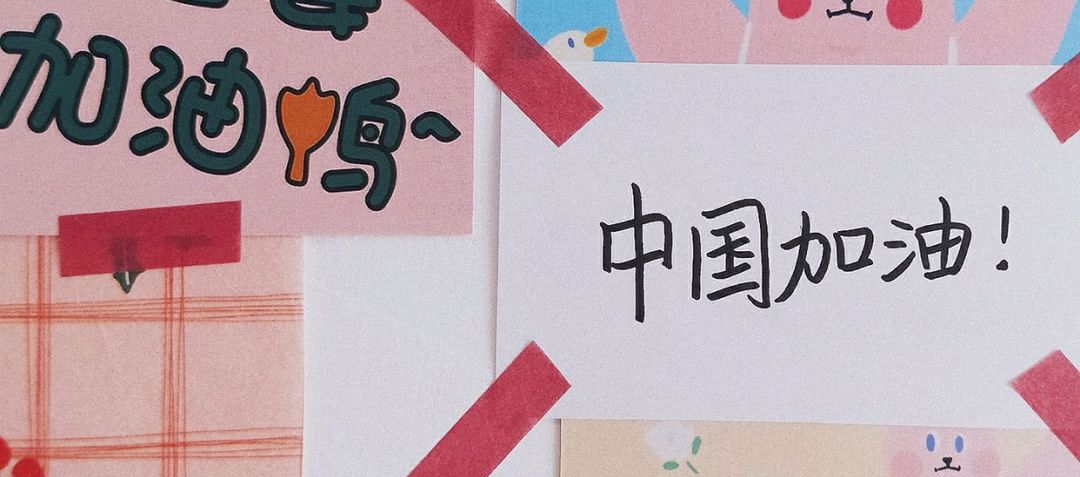 加油鸭~
中国加油!